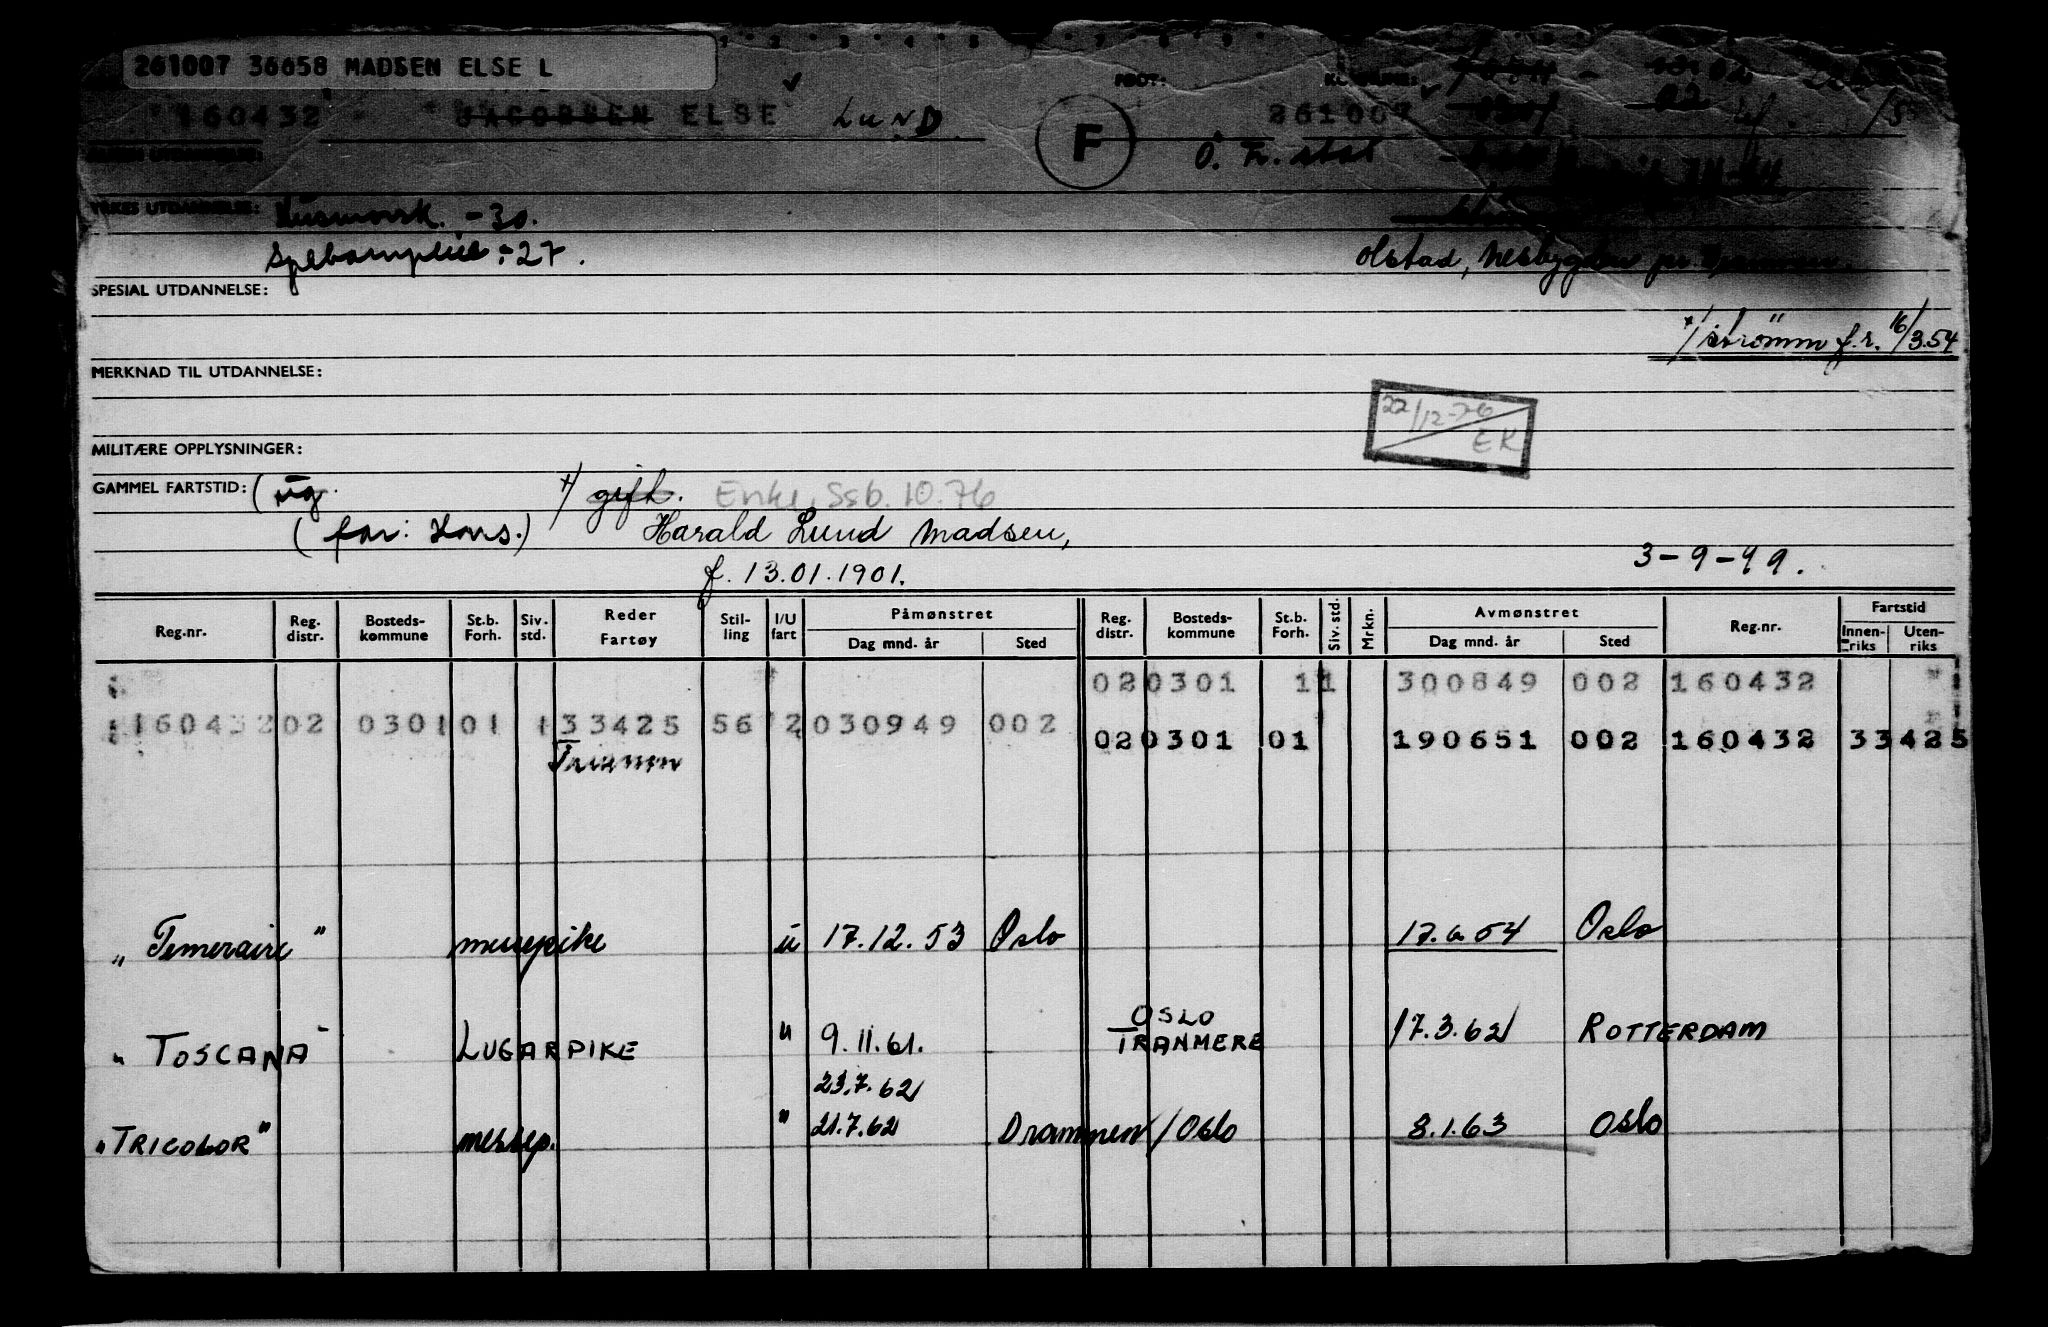 261007 36658 MADSEN ELSE L
FØDT:
160432 JACOBSEN ELSE LUND
F
261007
Ö. Fr. stad
YRKES UTDANNELSE: Husmorsk. -30.
Spebarnpleie -27.
Olstad, Nesbygden pr
SPESIAL UTDANNELSE:
x/ strömm f.r. 16/3.54
MERKNAD TIL UTDANNELSE:
22/12-76
EK
MILITÆRE OPPLYSNINGER:
GAMMEL FARTSTID: (ug. x/ gift. Enke, Ssb. 10.76
(far: Hans.) Harald Lund Madsen,
f. 13.01.1901.
3-9-49.
Reg.nr. Reg. distr. Bosteds- kommune St.b. Forh. Siv. std. Reder Fartøy Stil- ling I/U fart Påmønstret Dag mnd. år Sted Reg. distr. Bosteds- kommune St.b. Forh. Siv. std. Mrkn. Avmønstret Dag mnd. år Sted Reg.nr. Fartstid Innen- riks Uten- riks
02 0301 1 1 300849 002 160432
160432 02 0301 01 1 33425 56 2 030949 002
02 0301 01 190651 002 160432 33425
Trianon
"Temeraire" messepike u 17.12.53 Oslo 17.6.54 Oslo
"TOSCANA" LUGARPIKE " 9.11.61. OSLO TRANMERE 17.3.62 ROTTERDAM
23.7.62
"TRICOLOR" messep. " 21.7.62 Drammen/Oslo 8.1.63 Oslo